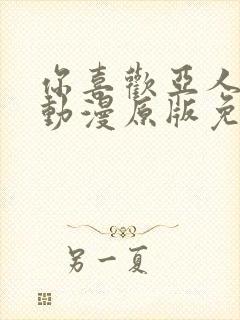 你喜歡亞人
動漫原版免
另一夏